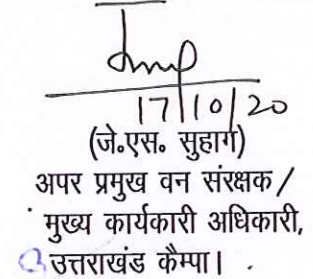 17/10/20
(जे०एस० सुहाग)
अपर प्रमुख वन संरक्षक/
मुख्य कार्यकारी अधिकारी,
उत्तराखंड कैम्पा।